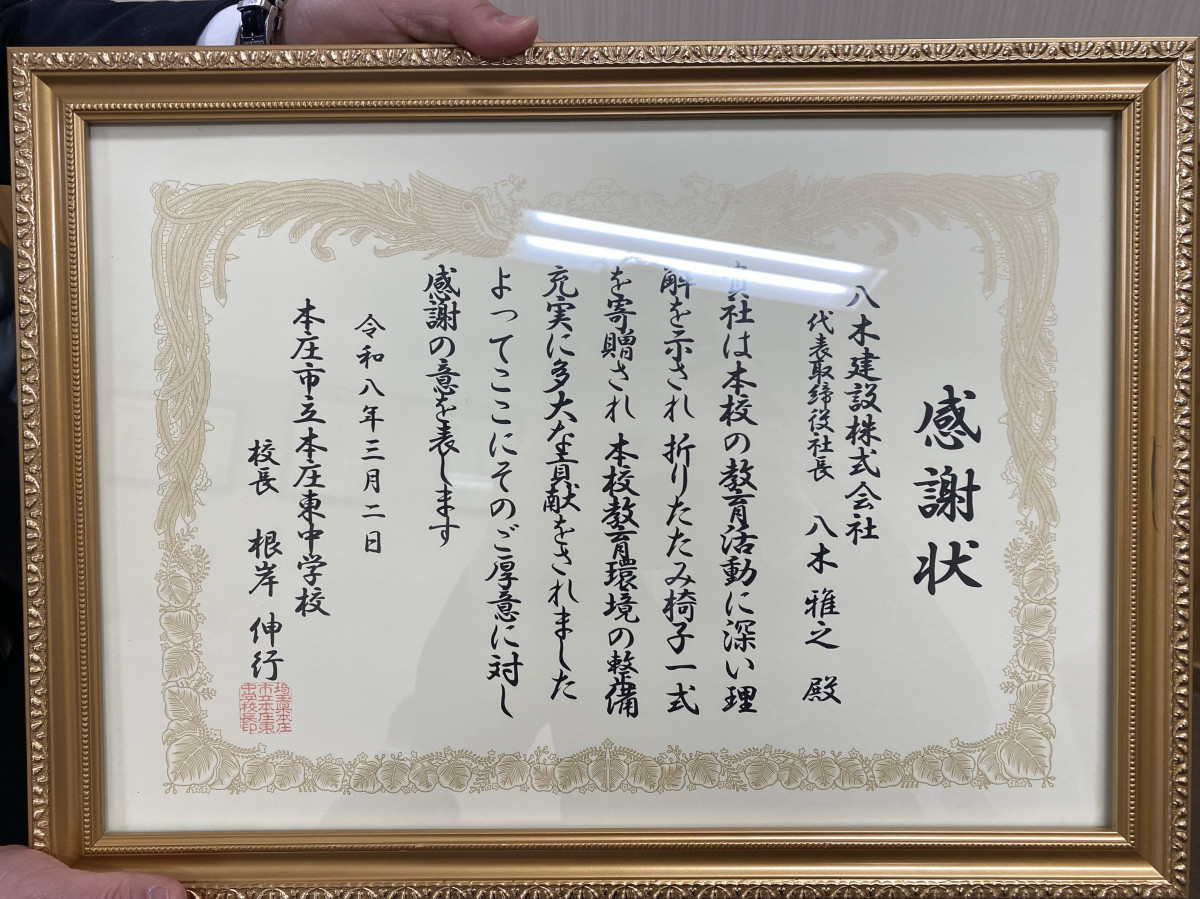 感謝状
八木建設株式会社
代表取締役社長 八木雅之 殿
貴社は本校の教育活動に深い理
解を示され 折りたたみ椅子一式
を寄贈され 本校教育環境の整備
充実に多大な貢献をされました
よってここにそのご厚意に対し
感謝の意を表します
令和八年三月二日
本庄市立本庄東中学校
校長 根岸 伸行
埼玉県本庄
市立本庄東
中学校長印